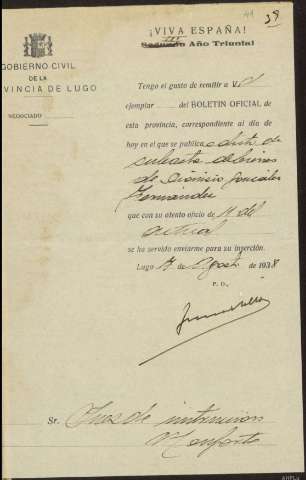 44 39
¡VIVA ESPAÑA!
III
Segundo Año Triunfal
GOBIERNO CIVIL
DE LA
PROVINCIA DE LUGO
NEGOCIADO
Tengo el gusto de remitir a V.
ejemplar del BOLETIN OFICIAL de
esta provincia, correspondiente al día de
hoy en el que se publica edicto de
subasta de bienes
de Dionisio González
Fernández
que con su atento oficio de 11 del
actual
se ha servido enviarme para su inserción.
Lugo de Agosto de 1938
P. D.,
Sr. Juez de instrucción
Monforte
AHPLu